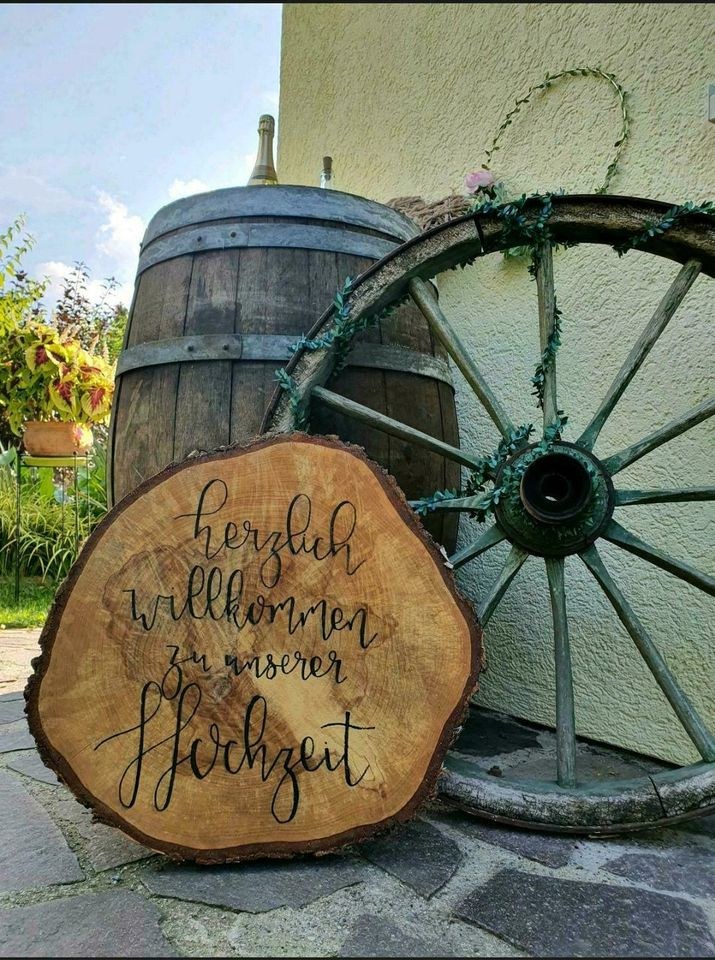 herzlich
willkommen
zu unserer
Hochzeit